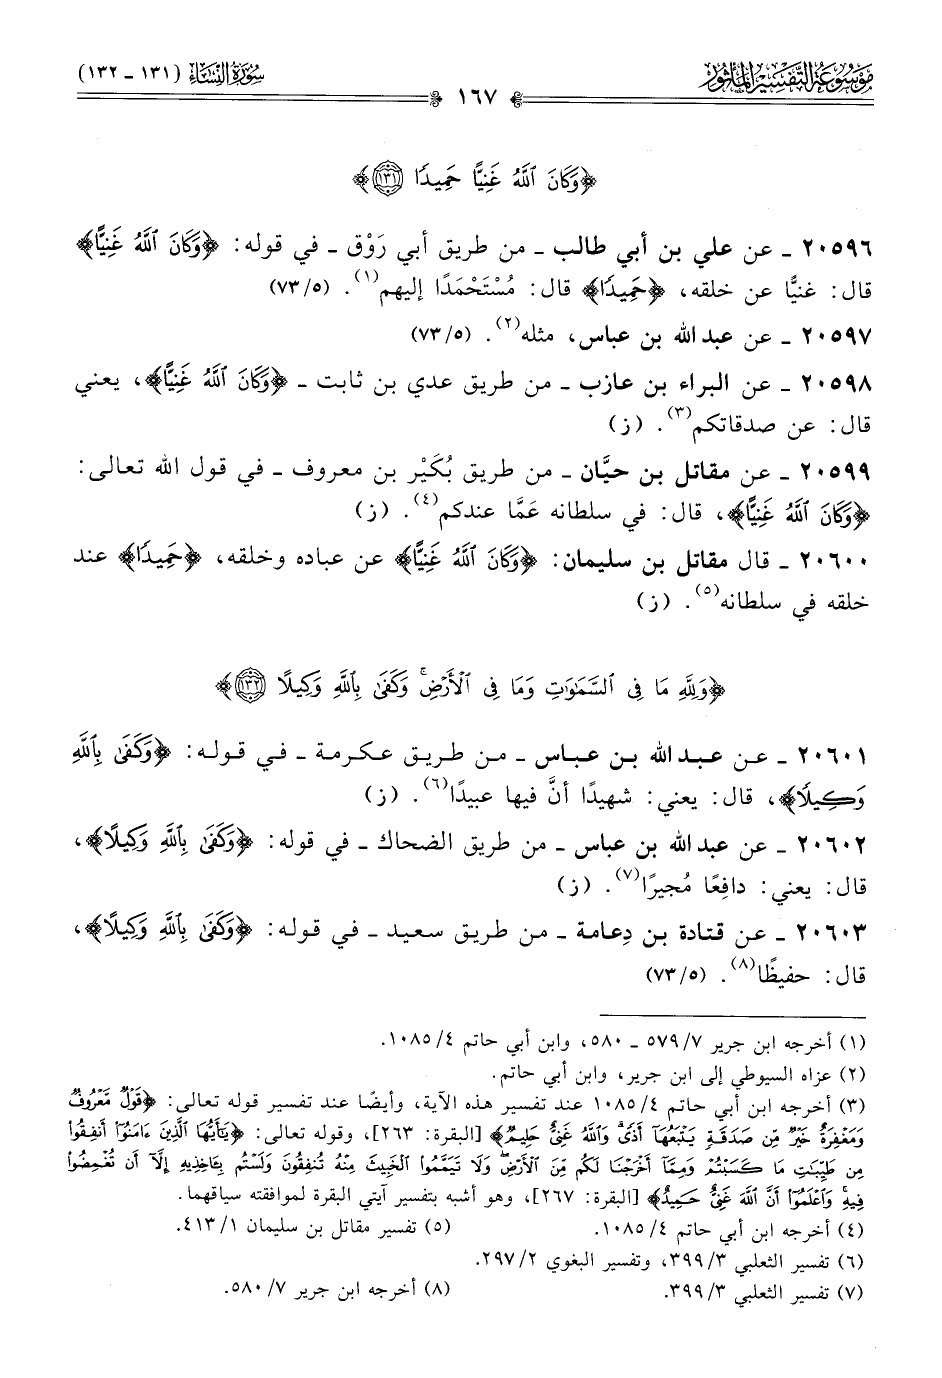 موسوعة التفسير المأثور
سورة النساء (١٣١ - ١٣٢)
١٦٧
﴿وَكَانَ ٱللَّهُ غَنِيًّا حَمِيدًا ١٣١﴾
٢٠٥٩٦ - عن علي بن أبي طالب - من طريق أبي رَوْق - في قوله: ﴿وَكَانَ ٱللَّهُ غَنِيًّا﴾
قال: غنيًّا عن خلقه، ﴿حَمِيدًا﴾ قال: مُسْتَحْمَدًا إليهم(١). (٧٣/٥)
٢٠٥٩٧ - عن عبد الله بن عباس، مثله(٢). (٧٣/٥)
٢٠٥٩٨ - عن البراء بن عازب - من طريق عدي بن ثابت - ﴿وَكَانَ ٱللَّهُ غَنِيًّا﴾، يعني
قال: عن صدقاتكم(٣). (ز)
٢٠٥٩٩ - عن مقاتل بن حيَّان - من طريق بُكَيْر بن معروف - في قول الله تعالى:
﴿وَكَانَ ٱللَّهُ غَنِيًّا﴾، قال: في سلطانه عَمَّا عندكم(٤). (ز)
٢٠٦٠٠ - قال مقاتل بن سليمان: ﴿وَكَانَ ٱللَّهُ غَنِيًّا﴾ عن عباده وخلقه، ﴿حَمِيدًا﴾ عند
خلقه في سلطانه(٥). (ز)
﴿وَلِلَّهِ مَا فِى ٱلسَّمَٰوَٰتِ وَمَا فِى ٱلْأَرْضِ ۚ وَكَفَىٰ بِٱللَّهِ وَكِيلًا ١٣٢﴾
٢٠٦٠١ - عن عبد الله بن عباس - من طريق عكرمة - في قوله: ﴿وَكَفَىٰ بِٱللَّهِ
وَكِيلًا﴾، قال: يعني: شهيدًا أنَّ فيها عبيدًا(٦). (ز)
٢٠٦٠٢ - عن عبد الله بن عباس - من طريق الضحاك - في قوله: ﴿وَكَفَىٰ بِٱللَّهِ وَكِيلًا﴾،
قال: يعني: دافِعًا مُجيرًا(٧). (ز)
٢٠٦٠٣ - عن قتادة بن دِعامة - من طريق سعيد - في قوله: ﴿وَكَفَىٰ بِٱللَّهِ وَكِيلًا﴾،
قال: حفيظًا(٨). (٧٣/٥)
(١) أخرجه ابن جرير ٧/ ٥٧٩ - ٥٨٠، وابن أبي حاتم ٤/ ١٠٨٥.
(٢) عزاه السيوطي إلى ابن جرير، وابن أبي حاتم.
(٣) أخرجه ابن أبي حاتم ٤/ ١٠٨٥ عند تفسير هذه الآية، وأيضًا عند تفسير قوله تعالى: ﴿قَوْلٌ مَّعْرُوفٌ
وَمَغْفِرَةٌ خَيْرٌ مِّن صَدَقَةٍ يَتْبَعُهَآ أَذًى ۗ وَٱللَّهُ غَنِىٌّ حَلِيمٌ﴾ [البقرة: ٢٦٣]، وقوله تعالى: ﴿يَٰٓأَيُّهَا ٱلَّذِينَ ءَامَنُوٓا۟ أَنفِقُوا۟
مِن طَيِّبَٰتِ مَا كَسَبْتُمْ وَمِمَّآ أَخْرَجْنَا لَكُم مِّنَ ٱلْأَرْضِ ۖ وَلَا تَيَمَّمُوا۟ ٱلْخَبِيثَ مِنْهُ تُنفِقُونَ وَلَسْتُم بِـَٔاخِذِيهِ إِلَّآ أَن تُغْمِضُوا۟
فِيهِ ۚ وَٱعْلَمُوٓا۟ أَنَّ ٱللَّهَ غَنِىٌّ حَمِيدٌ﴾ [البقرة: ٢٦٧]، وهو أشبه بتفسير آيتي البقرة لموافقته سياقهما.
(٤) أخرجه ابن أبي حاتم ٤/ ١٠٨٥. (٥) تفسير مقاتل بن سليمان ١/ ٤١٣.
(٦) تفسير الثعلبي ٣/ ٣٩٩، وتفسير البغوي ٢/ ٢٩٧.
(٧) تفسير الثعلبي ٣/ ٣٩٩. (٨) أخرجه ابن جرير ٧/ ٥٨٠.